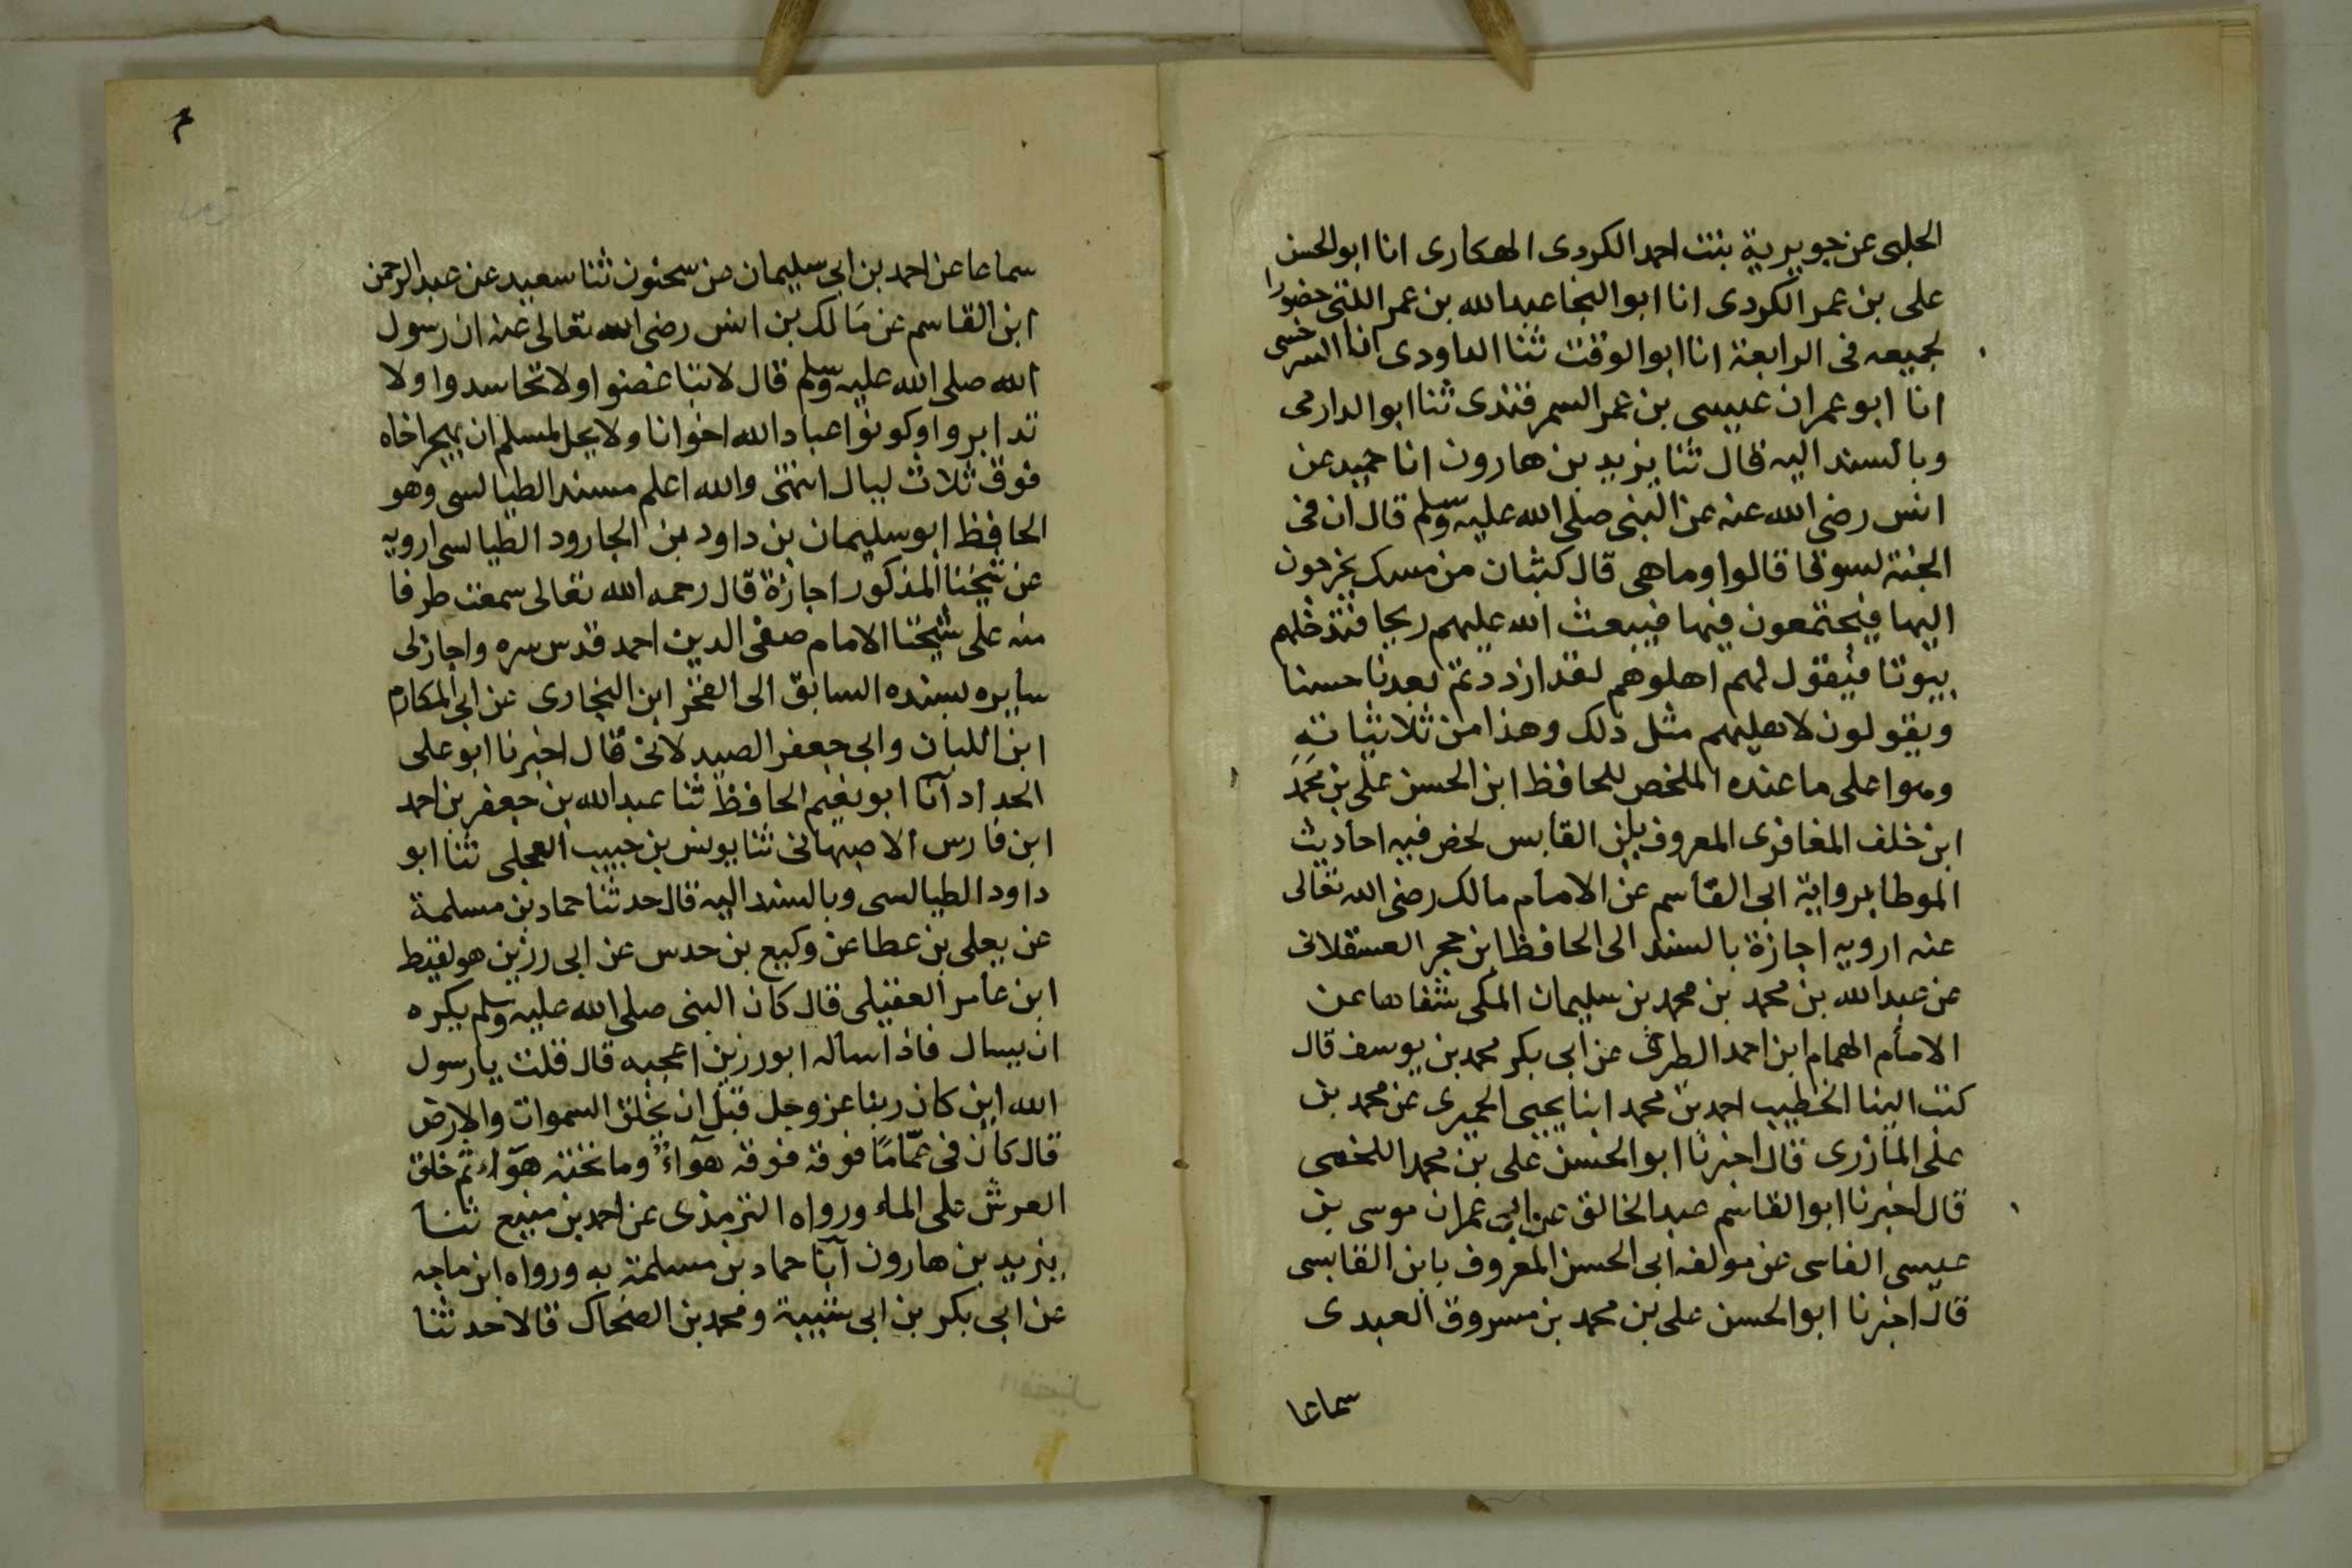 الحلبى عن جويرية بنت احمد الكردى الهكارى انا ابو الحسن
على بن عمر الكردى انا ابو النجا عبد الله بن عمر اللتى حضورا
لجميعه فى الرابعة انا ابو الوقت ثنا الداودى انا السرخسى
انا ابو عمران عيسى بن عمر السمرقندى ثنا ابو الدارمى
وبالسند اليه قال ثنا يزيد بن هارون انا حميد عن
انس رضى الله عنه عن النبى صلى الله عليه وسلم قال ان فى
الجنة لسوقا قالوا وما هى قال كثبان من مسك يخرجون
اليها فيجتمعون فيها فيبعث الله عليهم ريحا فتدخلهم
بيوتا فيقول لهم اهلوهم لقد ازددتم بعدنا حسنا
ويقولون لاهليهم مثل ذلك وهذا من ثلاثياته
وهو اعلى ما عنده الملخص للحافظ ابن الحسن على بن محمد
ابن خلف المغافرى المعروف بابن القابس لخص فيه احاديث
الموطا برواية ابى القاسم عن الامام مالك رضى الله تعالى
عنه ارويه اجازة بالسند الى الحافظ ابن حجر العسقلانى
عن عبد الله بن محمد بن محمد بن سليمان المكى شفاها عن
الامام الهمام ابن احمد الطبرى عن ابى بكر محمد بن يوسف قال
كتب الينا الخطيب احمد بن محمد ابنا يحيى الحميرى عن محمد بن
على المازرى قال اخبرنا ابو الحسن على بن محمد اللخمى
قال اخبرنا ابو القاسم عبد الخالق عن ابى عمران موسى بن
عيسى الفاسى عن مولفه ابى الحسن المعروف بابن القابسى
قال اخبرنا ابو الحسن على بن محمد بن مسروق العبدى
سماعا
م
سماعا عن احمد بن ابى سليمان عن سحنون ثنا سعيد عن عبد الرحمن
ابن القاسم عن مالك بن انس رضى الله تعالى عنه ان رسول
الله صلى الله عليه وسلم قال لا تباغضوا ولا تحاسدوا ولا
تدابروا وكونوا عباد الله اخوانا ولا يحل لمسلم ان يهجر اخاه
فوق ثلاث ليال انتهى والله اعلم مسند الطيالسى وهو
الحافظ ابو سليمان بن داود بن الجارود الطيالسى ارويه
عن شيخنا المذكور اجازة قال رحمه الله تعالى سمعت طرفا
منه على شيخنا الامام صفى الدين احمد قدس سره واجاز لى
سايره بسنده السابق الى الفخر ابن البخارى عن ابى المكارم
ابن اللبان وابى جعفر الصيدلانى قال اخبرنا ابو على
الحداد انا ابو نعيم الحافظ ثنا عبد الله بن جعفر بن احمد
ابن فارس الاصبهانى ثنا يونس بن حبيب العجلى ثنا ابو
داود الطيالسى وبالسند اليه قال حدثنا حماد بن مسلمة
عن يعلى بن عطا عن وكيع بن حدس عن ابى رزين هو لقيط
ابن عامر العقيلى قال كان النبى صلى الله عليه وسلم يكره
ان يسال فاذا ساله ابو رزين اعجبه قال قلت يا رسول
الله اين كان ربنا عز وجل قبل ان يخلق السموات والارض
قال كان فى عماما فوقه فوقه هواء وما تحته هواء ثم خلق
العرش على الماء ورواه الترمذى عن احمد بن منيع ثنا
يزيد بن هارون انا حماد بن مسلمة به ورواه ابن ماجه
عن ابى بكر بن ابى شيبة ومحمد بن الضحاك قالا حدثنا